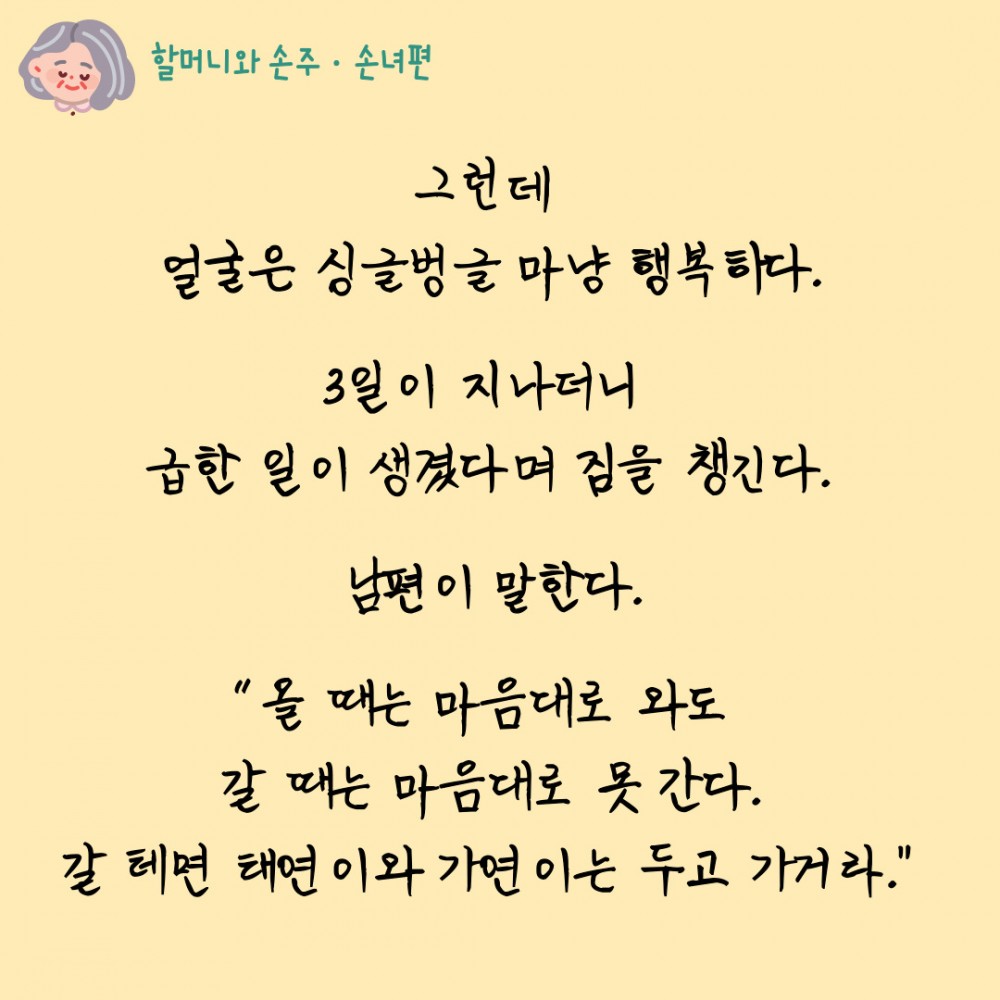 할머니와 손주 · 손녀편
그런데
얼굴은 싱글벙글 마냥 행복하다.
3일이 지나더니
급한 일이 생겼다며 짐을 챙긴다.
남편이 말한다.
"올 때는 마음대로 와도
갈 때는 마음대로 못 간다.
갈 테면 태연이와 가연이는 두고 가거라."